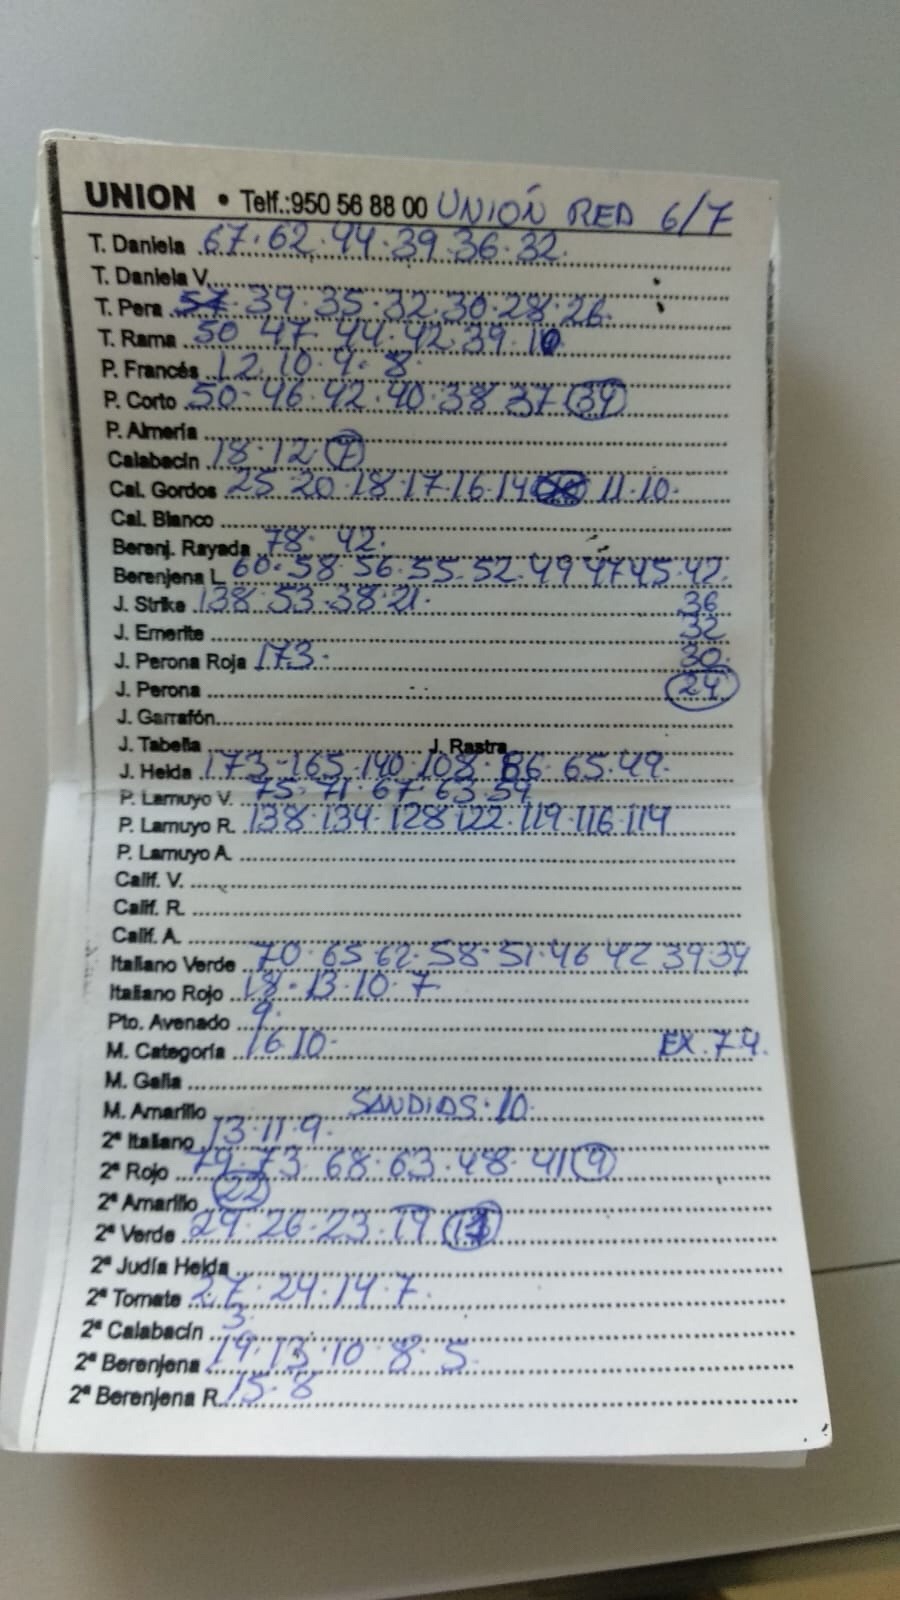 UNION • Telf.:950 56 88 00 UNIÓN RED 6/7
T. Daniela 67.62.44.39.36.32.
T. Daniela V.
T. Pera 39.35.32.30.28.26.
T. Rama 50 47 44.42.39.10
P. Francés 12.10.9.8.
P. Corto 50.46.42.40.38 37 (34)
P. Almería
Calabacín 18.12.(7)
Cal. Gordos 25 20.18.17.16.14 11.10.
Cal. Blanco
Berenj. Rayada 78.42.
Berenjena L 60.58.56.55.52.49 47 45.42.
J. Strike 138.53.38.21. 36
J. Emerite 32
J. Perona Roja 173. 30.
J. Perona (24)
J. Garrafón
J. Tabella J. Rastra
J. Helda 173-165.140.108.86.65.49.
P. Lamuyo V. 75.71.67.63.59
P. Lamuyo R. 138.134.128.122.119.116.114
P. Lamuyo A.
Calif. V.
Calif. R.
Calif. A.
Italiano Verde 70.65.62.58.51.46 42 39.34
Italiano Rojo 18.13.10.7
Pto. Avenado 9.
M. Categoría 16 10. EX.74.
M. Galia
M. Amarillo SANDIAS.10.
2ª Italiano 13.11.9.
2ª Rojo 79.73.68.63.48.41 (9)
2ª Amarillo (22)
2ª Verde 29.26.23.19
2ª Judía Helda
2ª Tomate 27.24.14.7.
2ª Calabacín 3.
2ª Berenjena 19.13.10.8.5.
2ª Berenjena R. 15.8